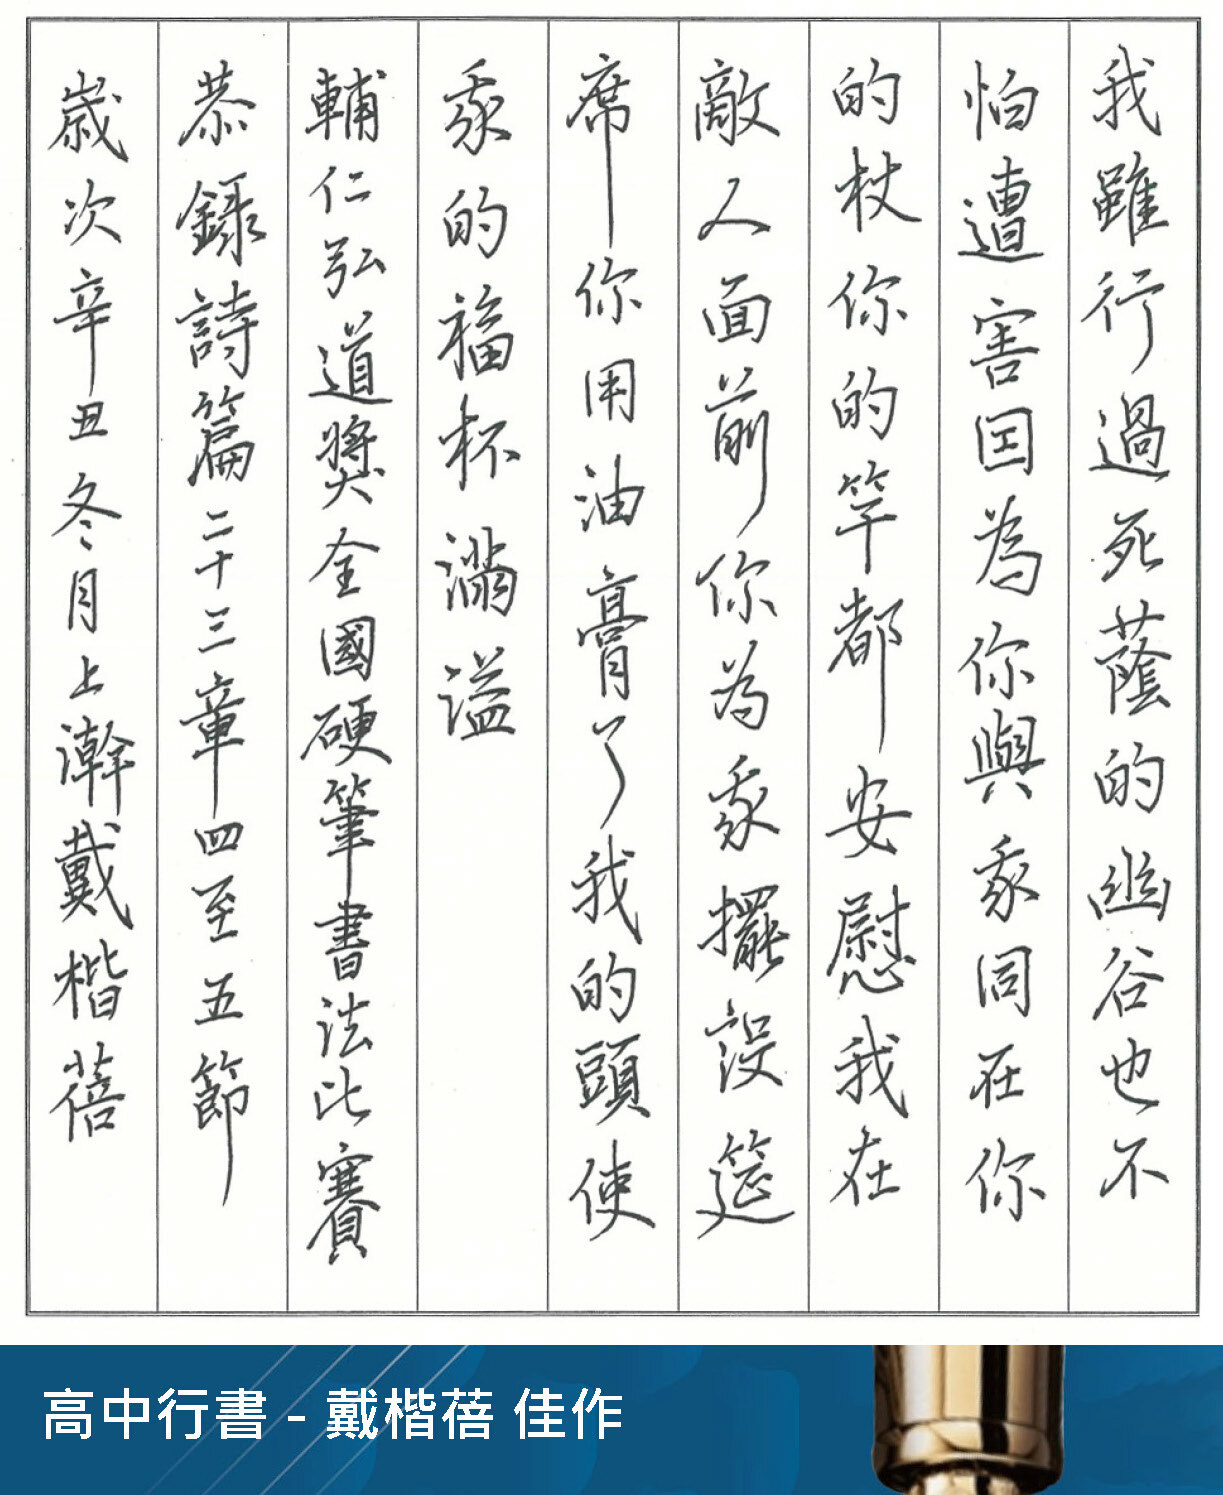 我雖行過死蔭的幽谷也不
怕遭害因為你與我同在你
的杖你的竿都安慰我在
敵人面前你為我擺設筵
席你用油膏了我的頭使
我的福杯滿溢
輔仁弘道獎全國硬筆書法比賽
恭錄詩篇二十三章四至五節
歲次辛丑冬月上澣戴楷蓓
高中行書 - 戴楷蓓 佳作